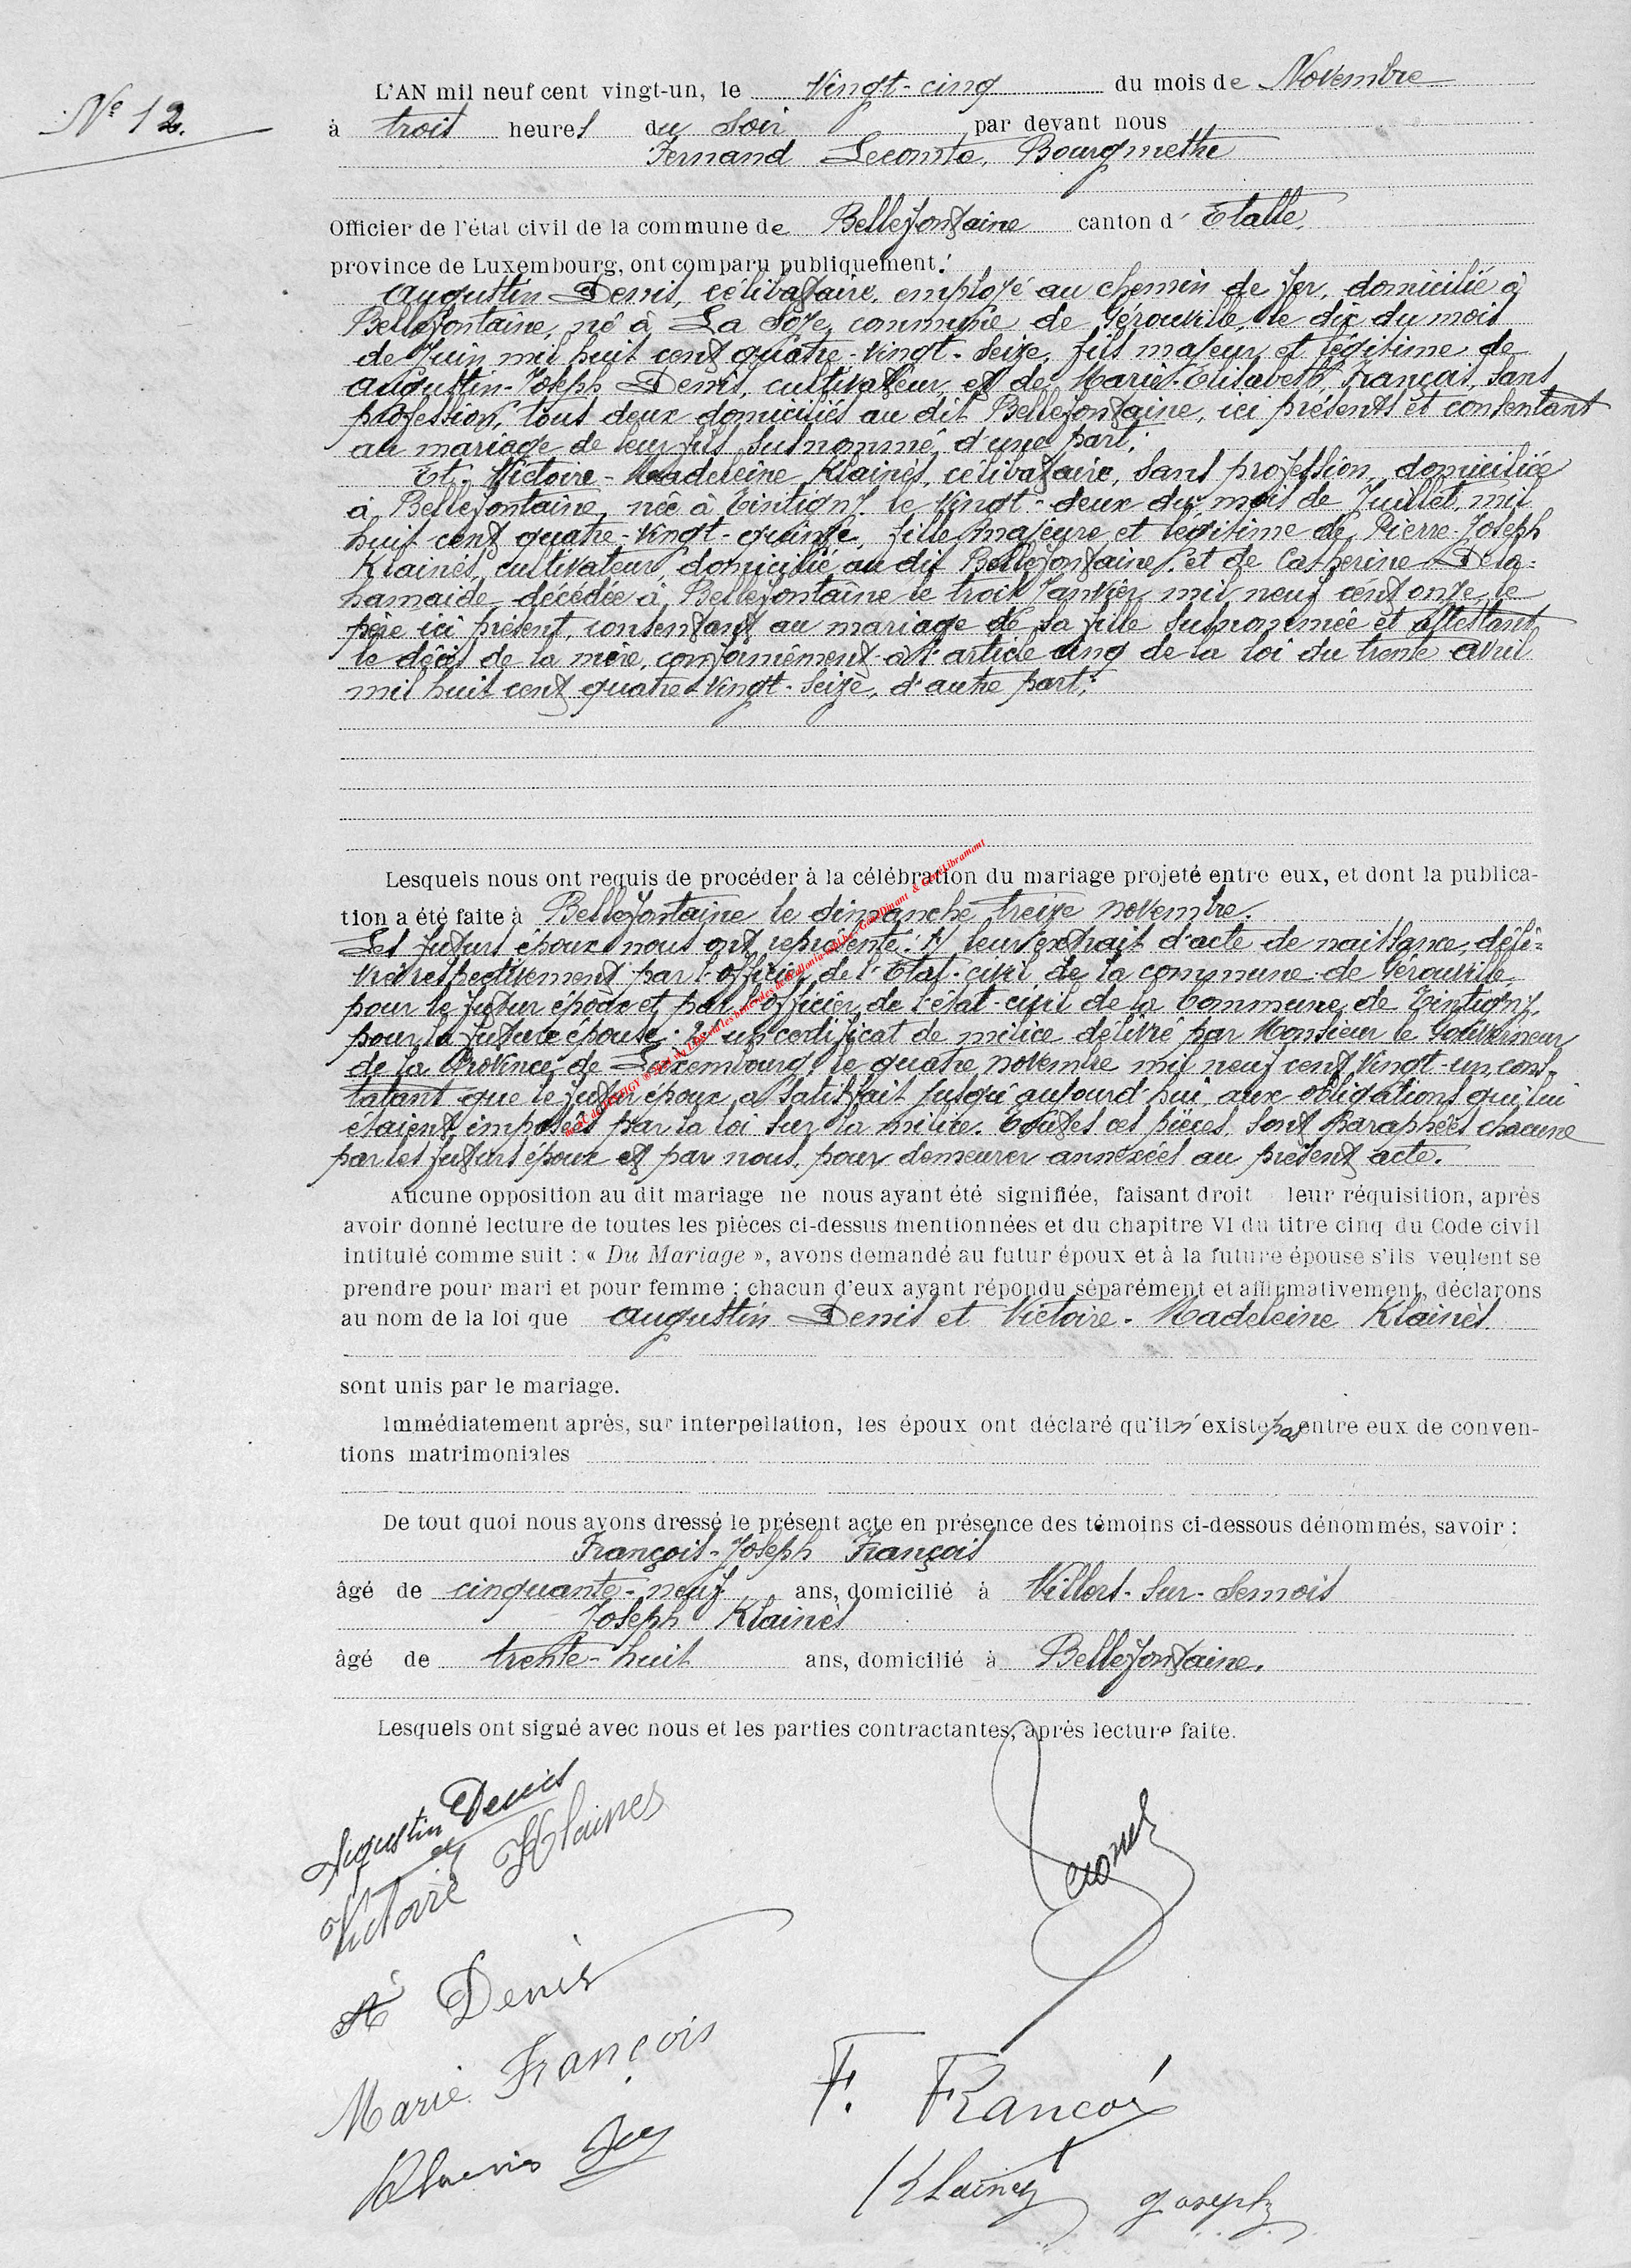 N° 12.
L'AN mil neuf cent vingt-un, le Vingt-cinq du mois de Novembre
à trois heures du Soir par devant nous
Fernand Lecomte, Bourgmestre
Officier de l'état civil de la commune de Bellefontaine canton d' Etalle,
province de Luxembourg, ont comparu publiquement:
Augustin Denis, célibataire, employé au chemin de fer, domicilié à
Bellefontaine, né à La Soye, commune de Gérouville, le dix du mois
de Juin mil huit cent quatre-vingt-seize, fils majeur et légitime de
Augustin-Joseph Denis, cultivateur et de Marie-Elisabeth François, sans
profession, tous deux domiciliés au dit Bellefontaine, ici présents et consentant
au mariage de leur fils susnommé d'une part;
Et, Victoire-Madeleine Klainès, célibataire, sans profession, domiciliée
à Bellefontaine, née à Tintigny, le vingt-deux du mois de Juillet, mil
huit cent quatre-vingt-quinze, fille majeure et légitime de Pierre-Joseph
Klainès, cultivateur, domicilié au dit Bellefontaine, et de Catherine Dela-
hamaide, décédée à Bellefontaine le trois Janvier mil neuf cent onze, le
père ici présent, consentant au mariage de sa fille susnommée et attestant
le décès de la mère, conformément à l'article cinq de la loi du trente avril
mil huit cent quatre-vingt-seize, d'autre part;
Lesquels nous ont requis de procéder à la célébration du mariage projeté entre eux, et dont la publica-
tion a été faite à Bellefontaine le dimanche treize novembre.
Les futurs époux nous ont représenté: 1/ leur extrait d'acte de naissance, déli-
vré respectivement par l'officier de l'Etat-civil de la commune de Gérouville
pour le futur époux et par l'officier de l'état-civil de la Commune de Tintigny
pour la future épouse; 2/ un certificat de milice délivré par Monsieur le Gouverneur
de la Province de Luxembourg le quatre novembre mil neuf cent vingt-un, cons-
tatant que le futur époux a satisfait jusqu'aujourd'hui aux obligations qui lui
étaient imposées par la loi sur la milice. Toutes ces pièces sont paraphées chacune
par les futurs époux et par nous, pour demeurer annexées au présent acte.
Aucune opposition au dit mariage ne nous ayant été signifiée, faisant droit leur réquisition, après
avoir donné lecture de toutes les pièces ci-dessus mentionnées et du chapitre VI du titre cinq du Code civil
intitulé comme suit : « Du Mariage », avons demandé au futur époux et à la future épouse s'ils veulent se
prendre pour mari et pour femme ; chacun d'eux ayant répondu séparément et affirmativement, déclarons
au nom de la loi que Augustin Denis et Victoire-Madeleine Klainès.
sont unis par le mariage.
Immédiatement après, sur interpellation, les époux ont déclaré qu'il n'existe pas entre eux de conven-
tions matrimoniales
De tout quoi nous avons dressé le présent acte en présence des témoins ci-dessous dénommés, savoir :
François-Joseph François
âgé de cinquante-neuf ans, domicilié à Villers-sur-Semois
Joseph Klainès
âgé de trente-huit ans, domicilié à Bellefontaine.
Lesquels ont signé avec nous et les parties contractantes, après lecture faite.
Augustin Denis
Victoire Klaines
A Denis
Marie François
F. François
Klainès Joseph